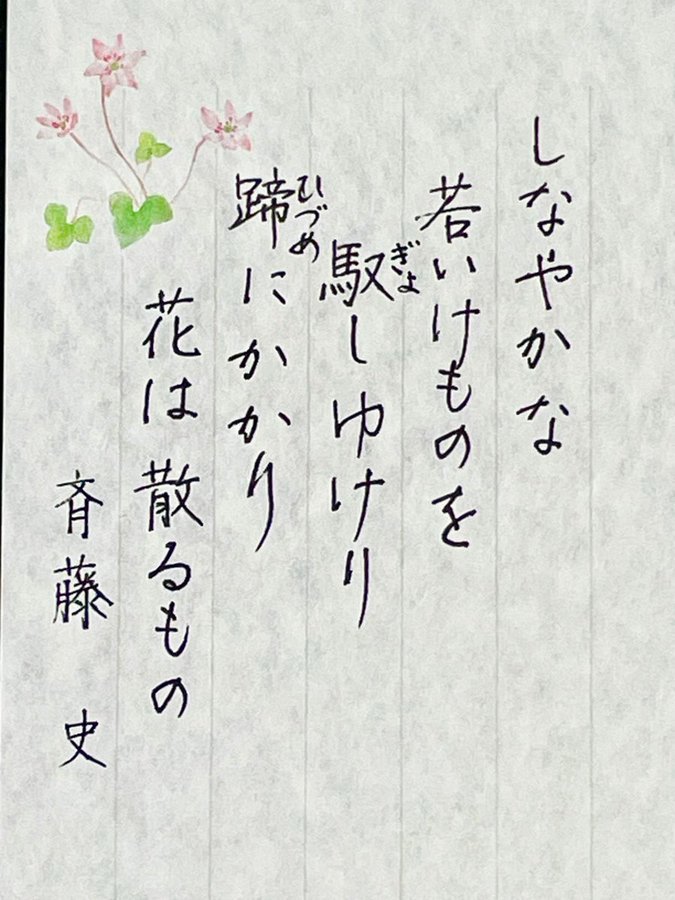 しなやかな
若いけものを
馭しゆけり
ぎょ
蹄にかかり
ひづめ
花は散るもの
斉藤 史